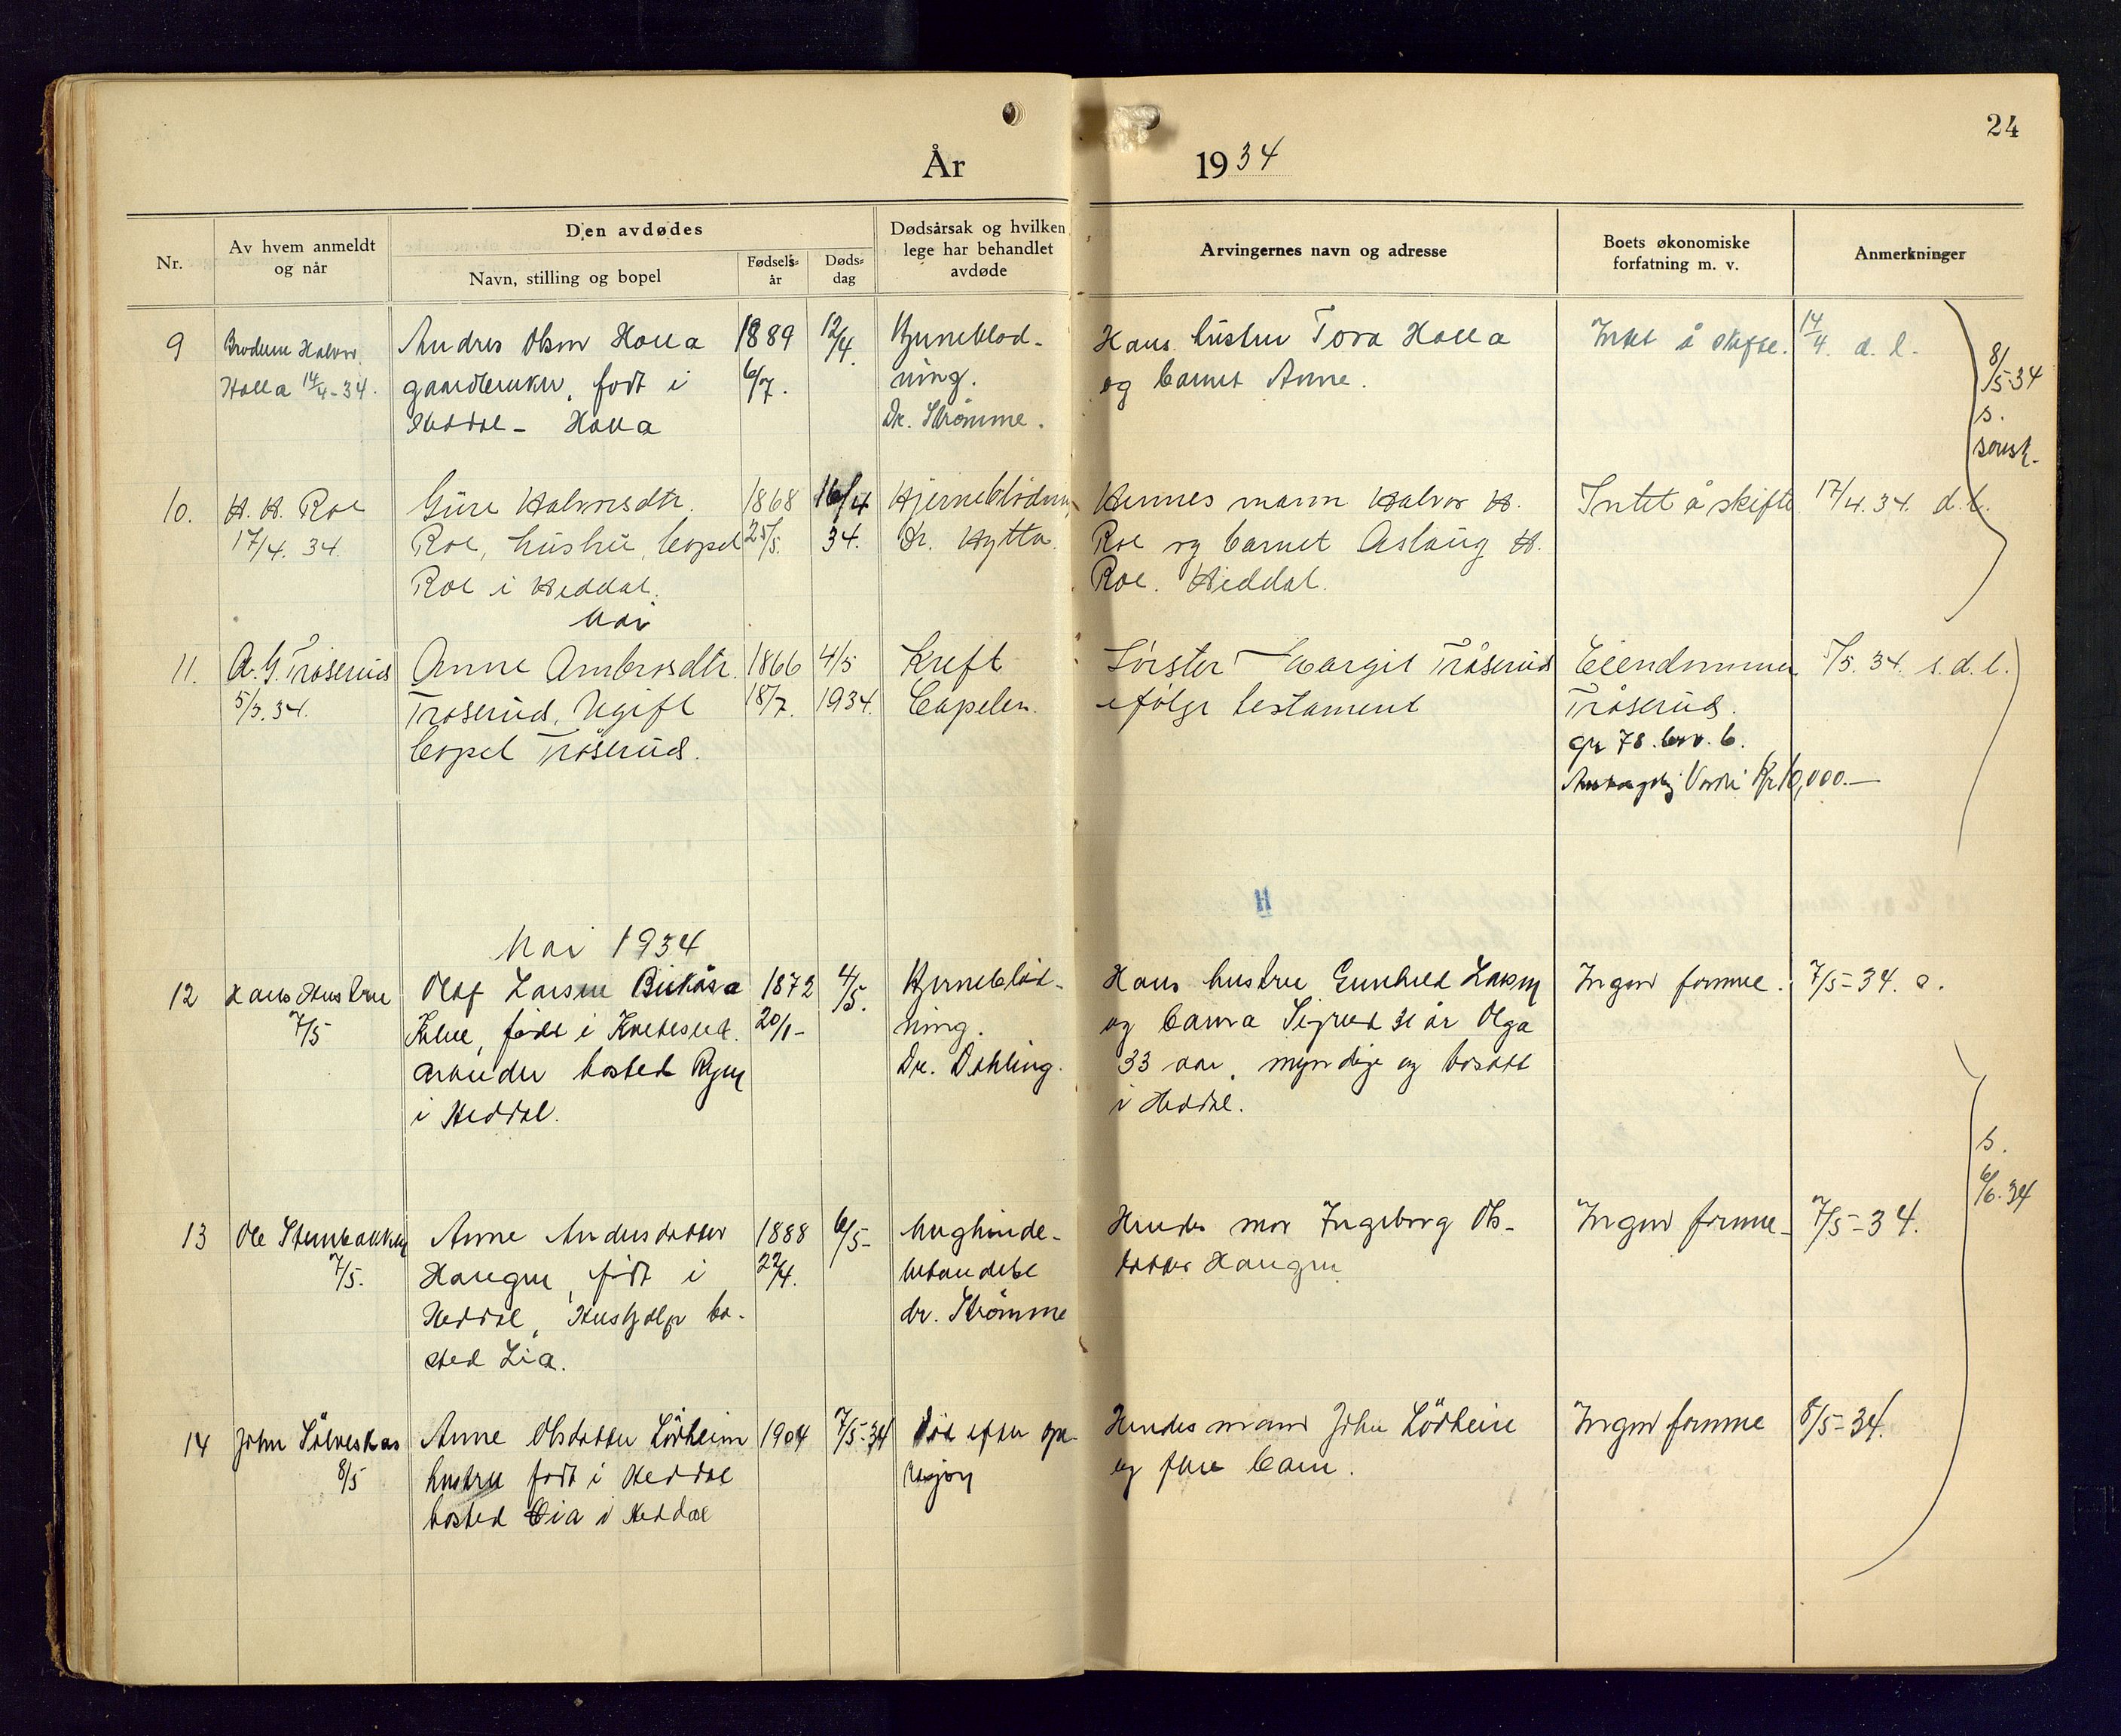 24
År 1934
Nr.
Av hvem anmeldt
og når
Den avdødes
Navn, stilling og bopel
Fødsels-
år
Døds-
dag
Dødsårsak og hvilken
lege har behandlet
avdøde
Arvingernes navn og adresse
Boets økonomiske
forfatning m. v.
Anmerkninger
9
Broderen Halvor
Holla 14/4-34.
Andres Olsen Holla
gaardbruker, født i
Heddal - Holla
1889
6/7.
12/4.
Hjerneblød-
ning.
Dr. Strømme.
Hans hustru Tora Holla
og barnet Anne.
Intet å skifte.
14/4. d. l.
8/5-34
s.
10.
H. H. Roe
17/4. 34.
Gure Halvorsdtr.
Roe, hustru, bopel
Roe i Heddal.
1868
25/5.
16/4
34.
Hjerneblødning
Dr. Hytta.
Hennes mann Halvor H.
Roe og barnet Aslaug H.
Roe. Heddal.
Intet å skifte
17/4. 34. d. l.
Mai
11.
A. G. Tråserud
5/5. 34.
Anne Ambrosdtr.
Tråserud, Ugift
bopel Tråserud.
1866
18/7.
4/5
1934.
Kreft
Capelen.
Sörster Margit Tråserud
ifølge testament
Eiendommen
Tråserud.
gr 78. brv. 6.
Verdi Kr 10,000.—
5/5. 34. s. d. l.
H
Mai 1934
12
Hans Hustru
7/5
Olaf Larsen
født i Kviteseid.
arbeider bosted
i Heddal.
1872
20/1-
4/5.
Hjerneblød-
ning.
Dr. Dahling.
Hans hustru Gunhild Larsen
og barna Sigrid 31 år Olga
33 aar, myndige og bosatt
i Heddal.
Ingen formue.
7/5-34. s.
13
Ole Stenbakken
7/5.
Anne Andersdatter
Haugen, født i
Heddal, Hushjelp bo-
sted Lia.
1888
22/4.
6/5-
Bughinde-
betendelse
dr. Strømme
Hendes mor Ingeborg Ols-
datter Haugen
Ingen formue-
7/5-34.
s.
6/6. 34
14
John
8/5
Anne Olsdatter Lörheim
hustru født i Heddal
bosted Lia i Heddal
1904
7/5-34
Död efter ope-
rasjon
Hendes mann John Lörheim
og flere barn.
Ingen formue
8/5-34.